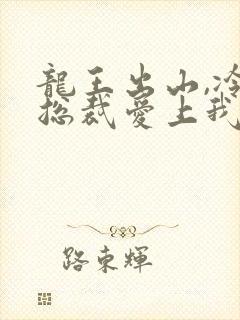 龍王出山,冷
總裁愛上我
路東輝